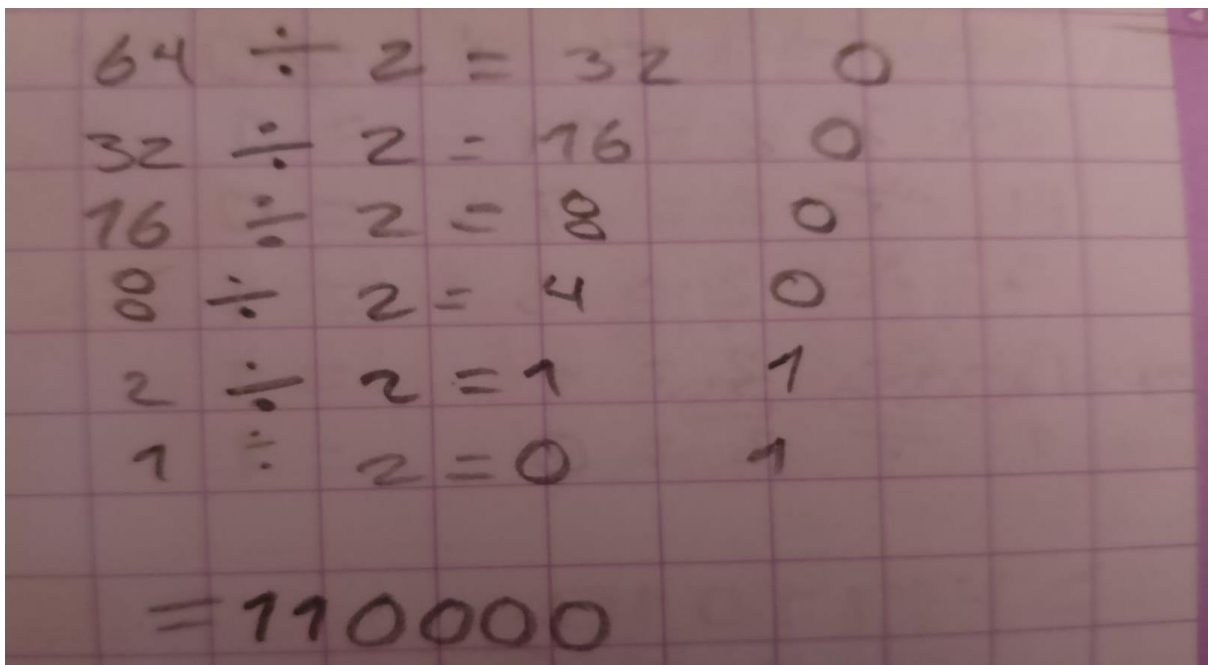 64 ÷ 2 = 32 0
32 ÷ 2 = 16 0
16 ÷ 2 = 8 0
8 ÷ 2 = 4 0
2 ÷ 2 = 1 1
1 ÷ 2 = 0 1
= 110000